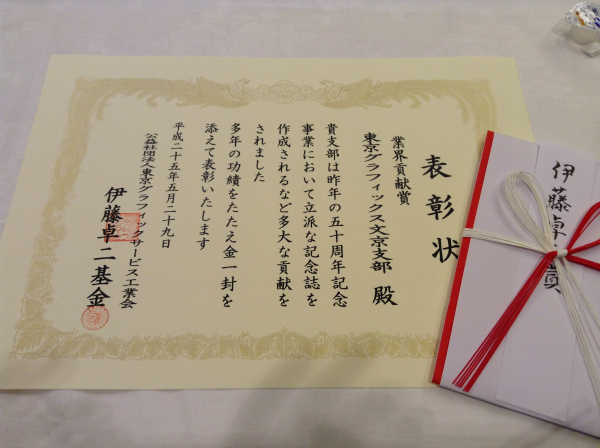 表彰状
業界貢献賞
東京グラフィックス文京支部 殿
貴支部は昨年の五十周年記念
事業において立派な記念誌を
作成されるなど多大な貢献を
されました
多年の功績をたたえ金一封を
添えて表彰いたします
平成二十五年五月二十九日
公益社団法人東京グラフィックサービス工業会
伊藤卓二基金
伊藤卓
賞